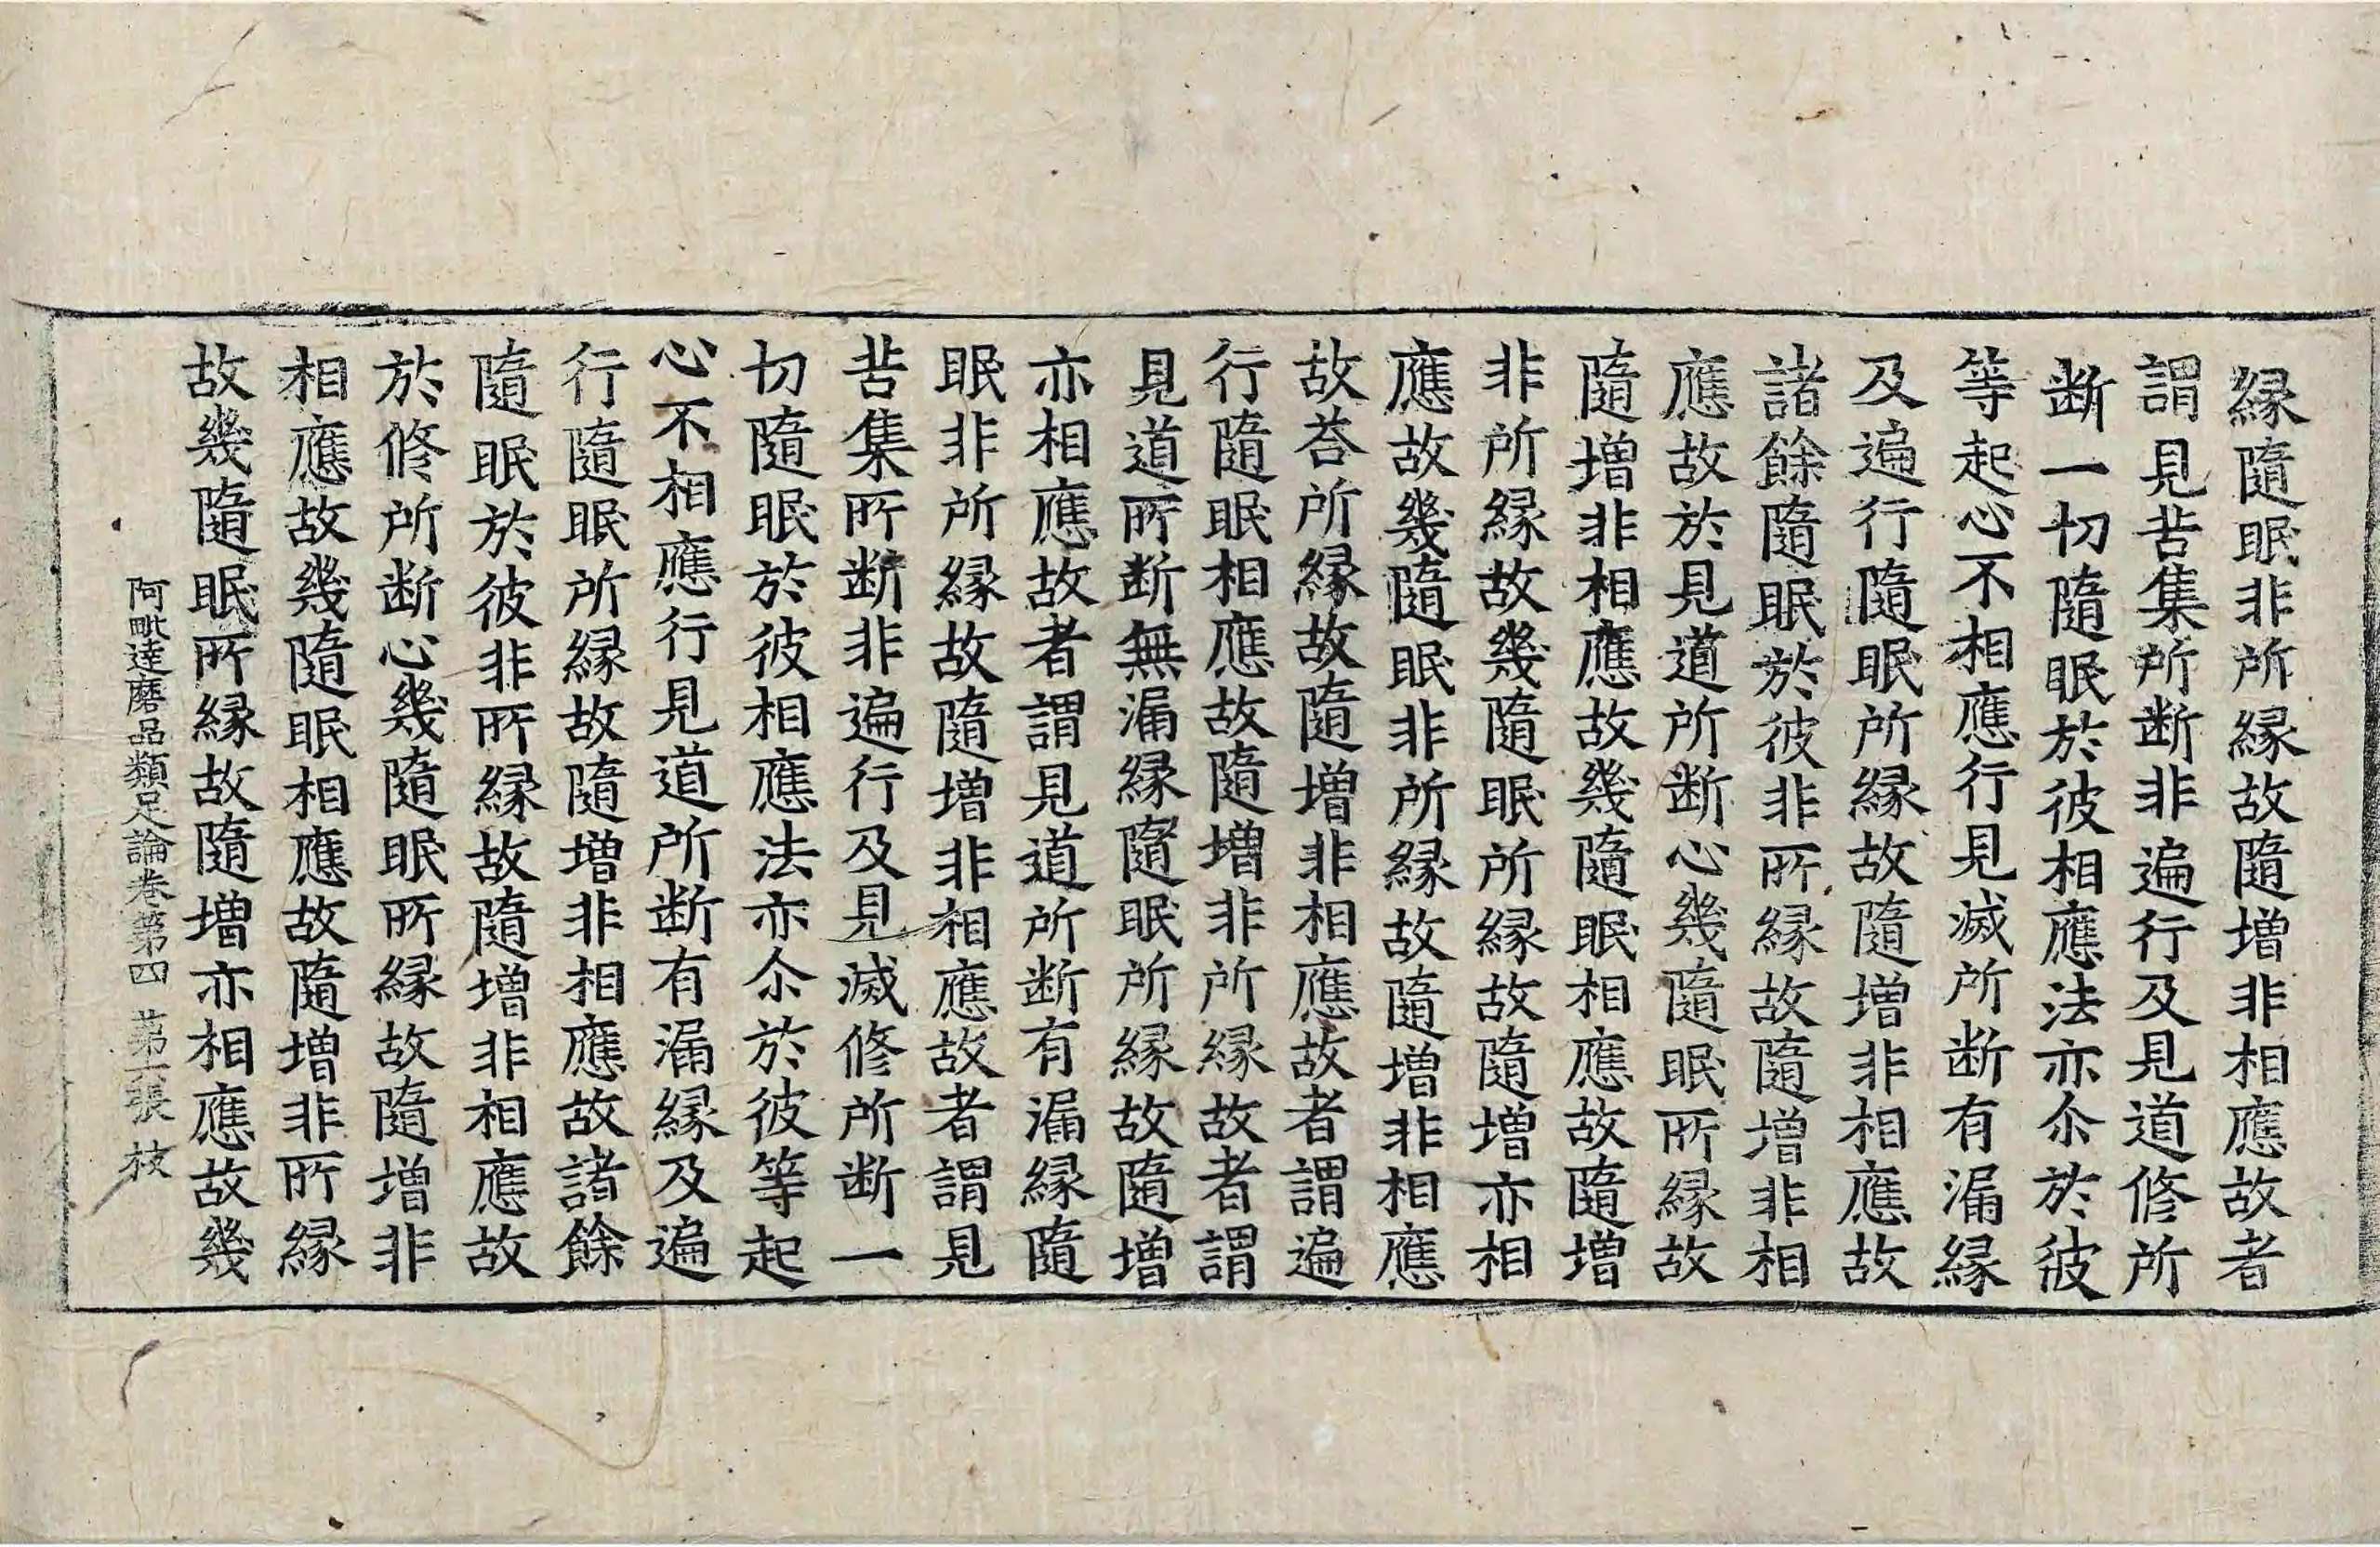 縁隨眠非所縁故隨增非相應故者
謂見苦集所斷非遍行及見道修所
斷一切隨眠於彼相應法亦尒於彼
等起心不相應行見滅所斷有漏縁
及遍行隨眠所縁故隨增非相應故
諸餘隨眠於彼非所縁故隨增非相
應故於見道所斷心幾隨眠所縁故
隨增非相應故幾隨眠相應故隨增
非所縁故幾隨眠所縁故隨增亦相
應故幾隨眠非所縁故隨增非相應
故荅所縁故隨增非相應故者謂遍
行隨眠相應故隨增非所縁故者謂
見道所斷無漏縁隨眠所縁故隨增
亦相應故者謂見道所斷有漏縁隨
眠非所縁故隨增非相應故者謂見
苦集所斷非遍行及見滅修所斷一
切隨眠於彼相應法亦尒於彼等起
心不相應行見道所斷有漏縁及遍
行隨眠所縁故隨增非相應故諸餘
隨眠於彼非所縁故隨增非相應故
於修所斷心幾隨眠所縁故隨增非
相應故幾隨眠相應故隨增非所縁
故幾隨眠所縁故隨增亦相應故幾
阿毗達磨品類足論卷第四 第六張 枝